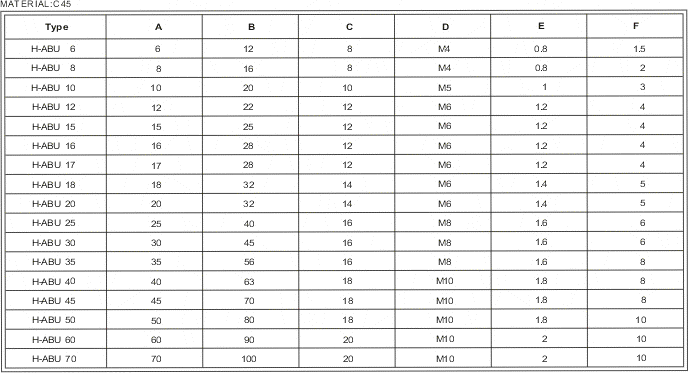 MATERIAL:C45
Type A B C D E F
H-ABU 6 6 12 8 M4 0.8 1.5
H-ABU 8 8 16 8 M4 0.8 2
H-ABU 10 10 20 10 M5 1 3
H-ABU 12 12 22 12 M6 1.2 4
H-ABU 15 15 25 12 M6 1.2 4
H-ABU 16 16 28 12 M6 1.2 4
H-ABU 17 17 28 12 M6 1.2 4
H-ABU 18 18 32 14 M6 1.4 5
H-ABU 20 20 32 14 M6 1.4 5
H-ABU 25 25 40 16 M8 1.6 6
H-ABU 30 30 45 16 M8 1.6 6
H-ABU 35 35 56 16 M8 1.6 8
H-ABU 40 40 63 18 M10 1.8 8
H-ABU 45 45 70 18 M10 1.8 8
H-ABU 50 50 80 18 M10 1.8 10
H-ABU 60 60 90 20 M10 2 10
H-ABU 70 70 100 20 M10 2 10